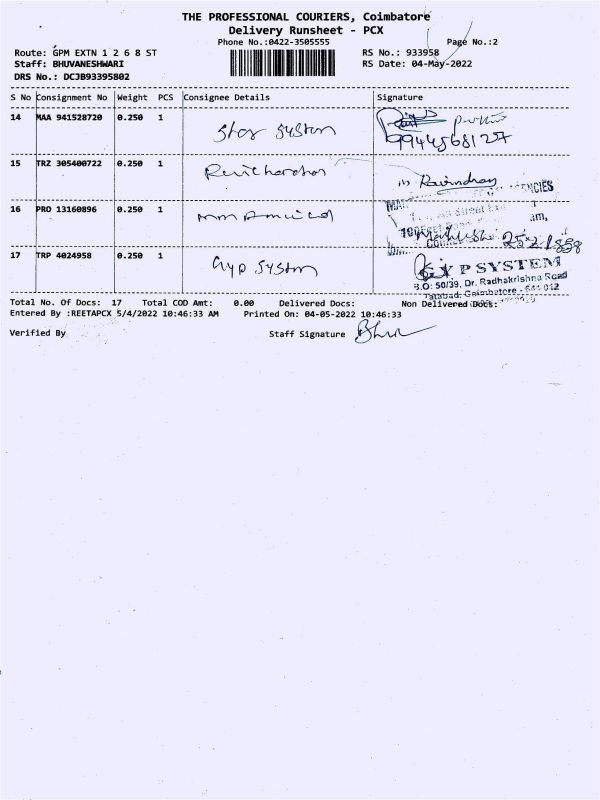 THE PROFESSIONAL COURIERS, Coimbatore
Delivery Runsheet - PCX
Phone No.:0422-3505555
Page No.:2
Route: GPM EXTN 1 2 6 8 ST
RS No.: 933958
Staff: BHUVANESHWARI
RS Date: 04-May-2022
DRS No.: DCJB93395802
S No Consignment No Weight PCS Consignee Details Signature
14 MAA 941528720 0.250 1 Star System
9944568127
15 TRZ 305400722 0.250 1
Ravindran
16 PRO 13160896 0.250 1
17 TRP 4024958 0.250 1 Gyp System
GYP SYSTEM
B.O: 50/39, Dr. Radhakrishna Road
Tatabad, Coimbatore - 641 012
Total No. Of Docs: 17 Total COD Amt: 0.00 Delivered Docs: Non Delivered Docs:
Entered By :REETAPCX 5/4/2022 10:46:33 AM Printed On: 04-05-2022 10:46:33
Verified By Staff Signature